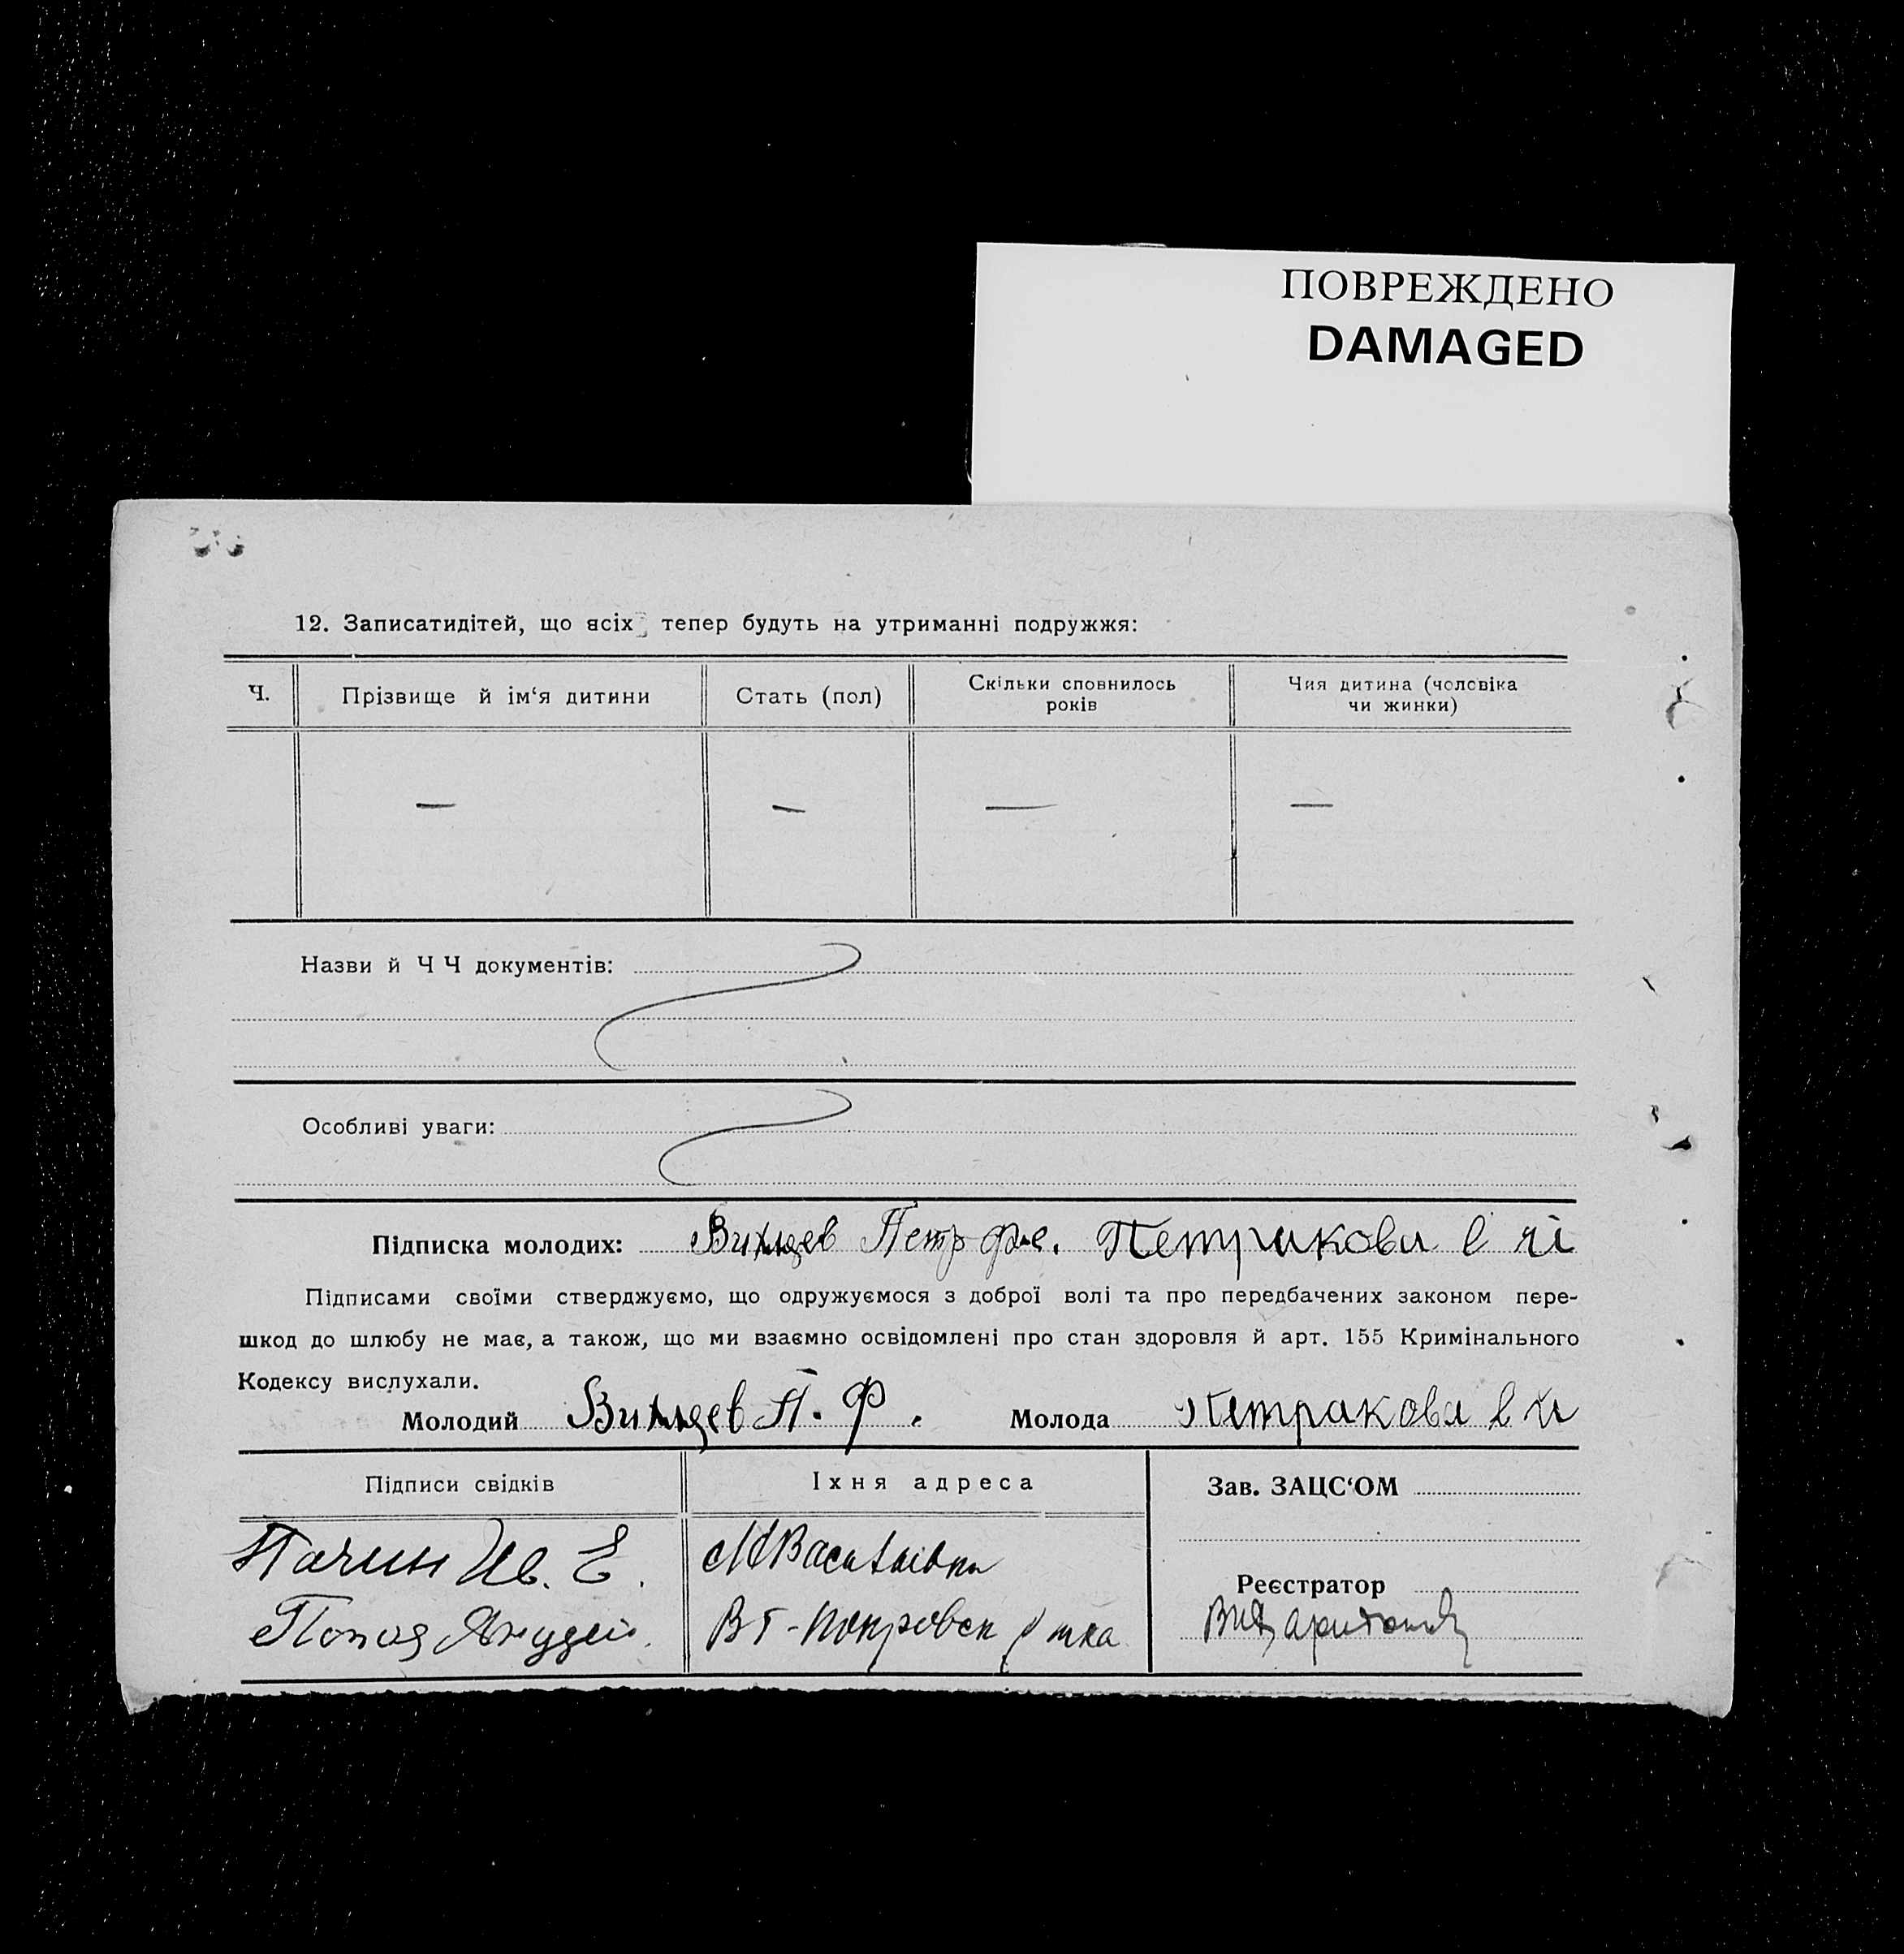 ПОВРЕЖДЕНО
DAMAGED
12. Записатидітей, що всіх тепер будуть на утриманні подружжя:
Ч. Прізвище й ім‘я дитини Стать (пол) Скільки сповнилось років Чия дитина (чоловіка чи жинки)
— — — —
Назви й Ч Ч документів:
Особливі уваги:
Підписка молодих: Петр Петракова
Підписами своїми стверджуємо, що одружуємося з доброї волі та про передбачених законом пере-
шкод до шлюбу не має, а також, що ми взаємно освідомлені про стан здоровля й арт. 155 Кримінального
Кодексу вислухали.
Молодий П. Ф. Молода Петракова
Підписи свідків Їхня адреса Зав. ЗАЦС‘ОМ
Ив. Е.
Реєстратор